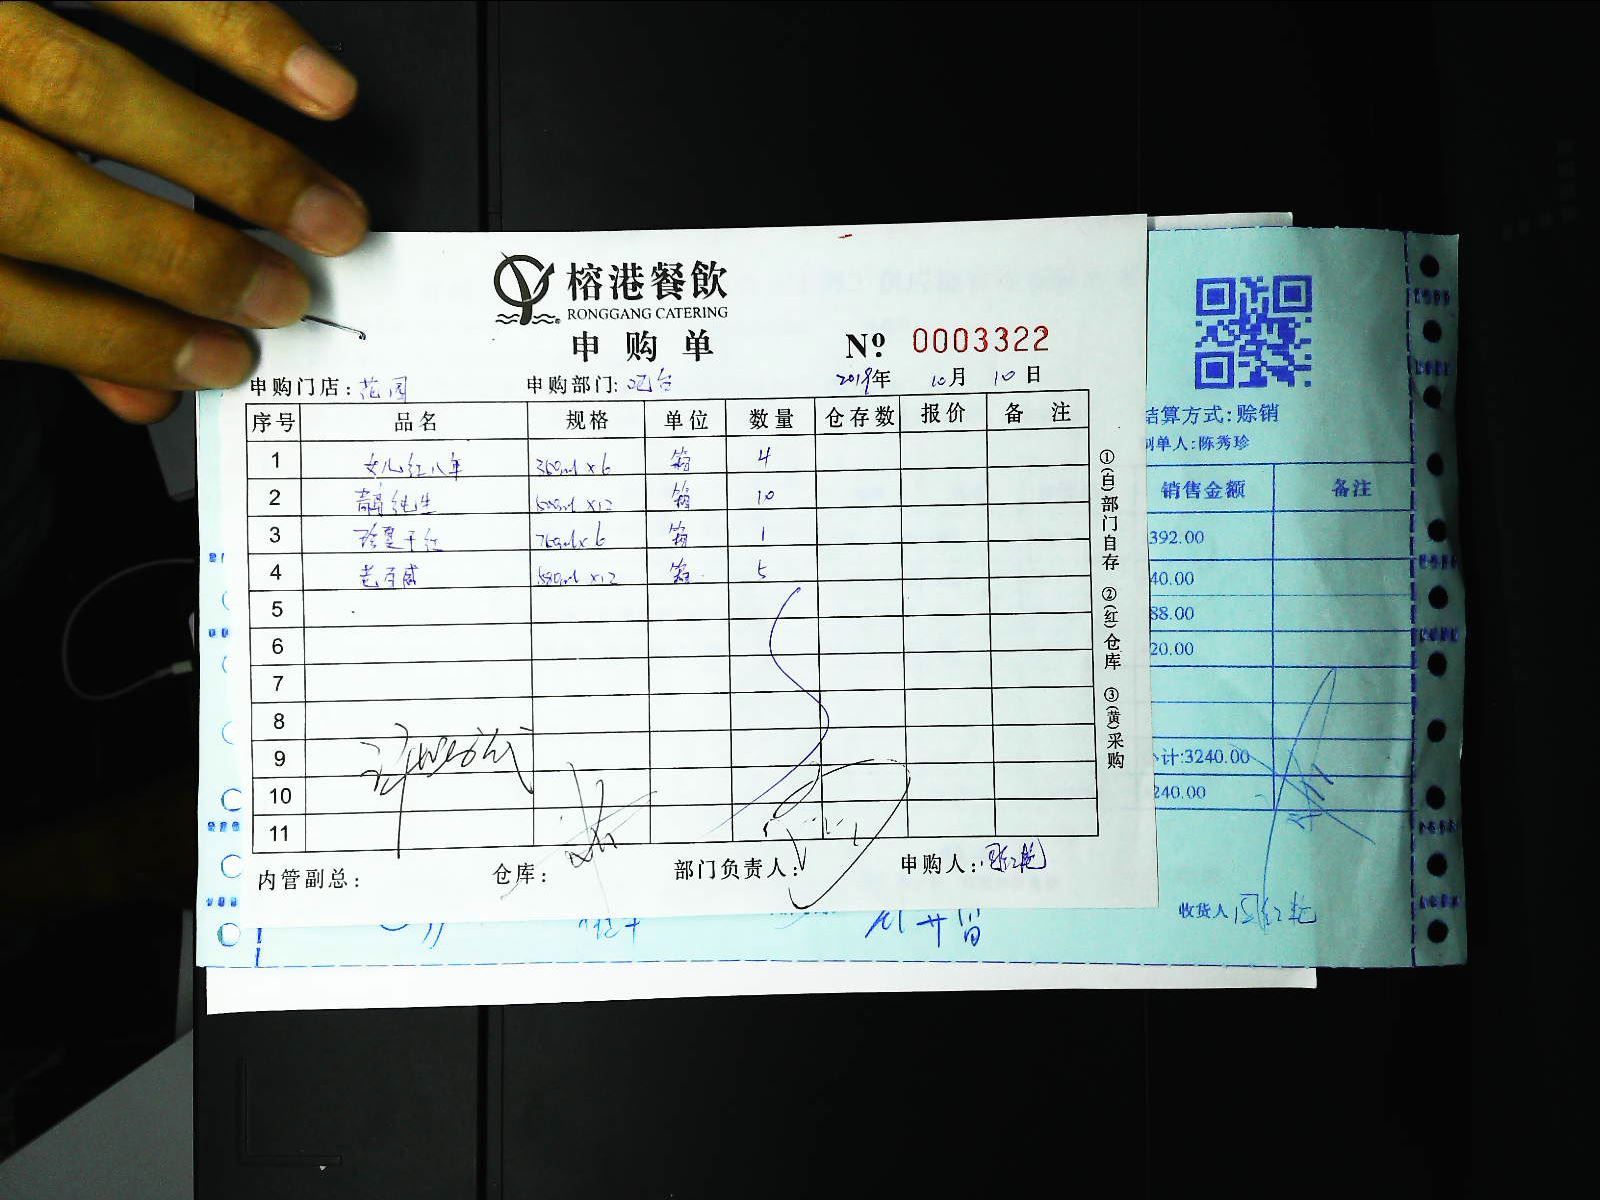 榕港餐飲
RONGGANG CATERING
申购单
№ 0003322
申购门店：花园 申购部门：吧台 2019年 10月 10日
序号 品名 规格 单位 数量 仓存数 报价 备注
1 女儿红八年 350ml×6 箱 4
2 纯生 500ml×12 箱 10
3 干红 750ml×6 箱 1
4 500ml×12 箱 5
5
6
7
8
9
10
11
内管副总： 仓库： 部门负责人： 申购人：
①(白)部门自存 ②(红)仓库 ③(黄)采购
结算方式：赊销
制单人：陈秀珍
销售金额 备注
392.00
40.00
88.00
20.00
计:3240.00
240.00
收货人